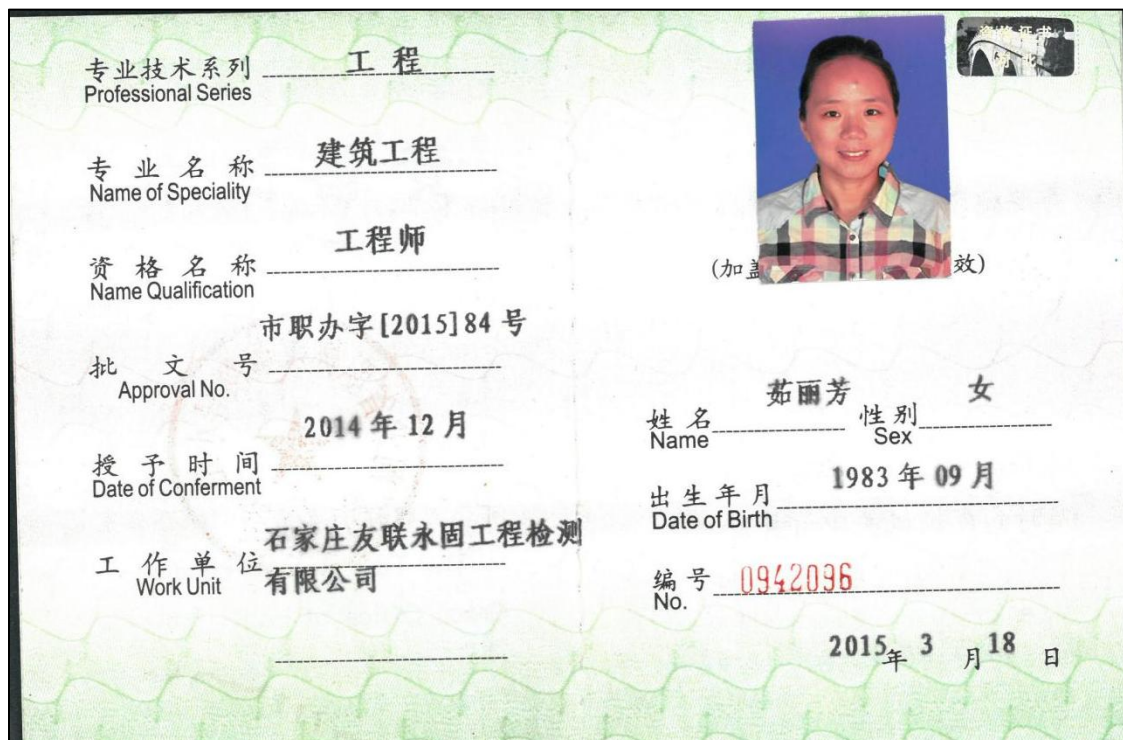 专业技术系列 工程
Professional Series
专业名称 建筑工程
Name of Speciality
资格名称 工程师
Name Qualification
批文号 市职办字[2015]84号
Approval No.
授予时间 2014年12月
Date of Conferment
工作单位 石家庄友联永固工程检测
Work Unit 有限公司
资格证书
(加盖 效)
姓名 茹丽芳 性别 女
Name Sex
出生年月 1983年09月
Date of Birth
编号 0942096
No.
2015年3月18日